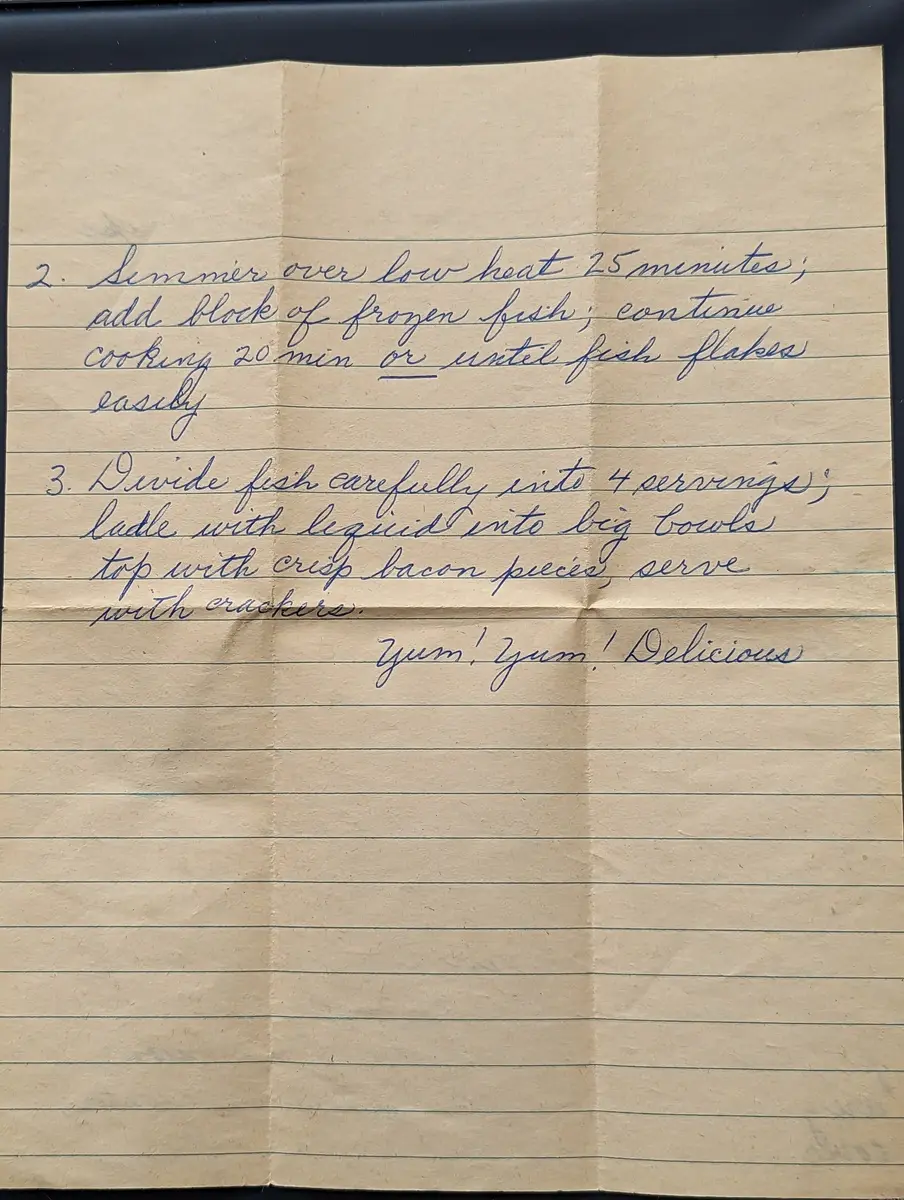 2. Simmer over low heat 25 minutes;
add block of frozen fish; continue
cooking 20 min or until fish flakes
easily
3. Divide fish carefully into 4 servings;
ladle with liquid into big bowls
top with crisp bacon pieces, serve
with crackers.
Yum! Yum! Delicious